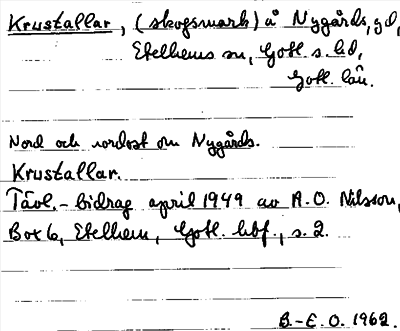 Krustallar, (skogsmark) å Nygårds, gd,
Etelhems sn, Gotl. s. hd,
Gotl. län.
Nord och nordost om Nygårds.
Krustallar.
Tävl.-bidrag april 1949 av A.O. Nilsson,
Box 6, Etelhem, Gotl. hbf., s. 2.
B.-E. O. 1962.